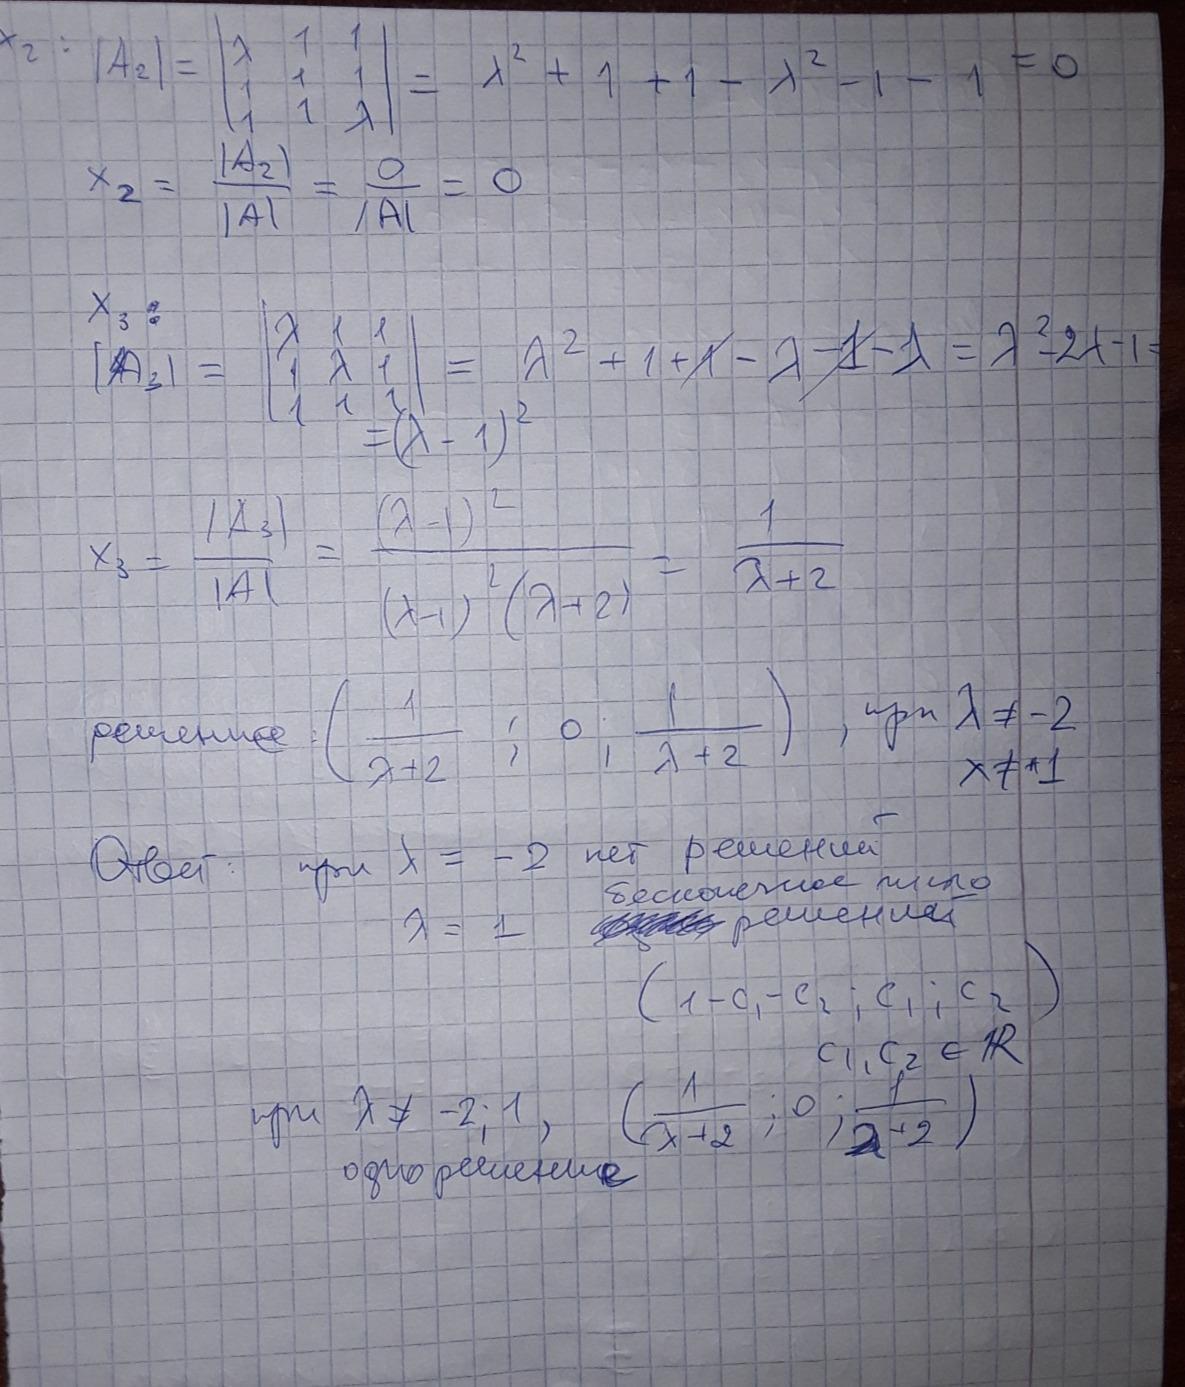 x₂: |A₂| = |λ 1 1; 1 1 1; 1 1 λ| = λ² + 1 + 1 − λ² − 1 − 1 = 0
x₂ = |A₂| / |A| = 0 / |A| = 0
x₃:
|A₃| = |λ 1 1; 1 λ 1; 1 1 1| = λ² + 1 + 1 − λ − 1 − λ = λ² − 2λ + 1 =
= (λ − 1)²
x₃ = |A₃| / |A| = (λ−1)² / (λ−1)²(λ+2) = 1 / λ+2
решение: (1 / λ+2 ; 0 ; 1 / λ+2), при λ ≠ −2
λ ≠ 1
Ответ: при λ = −2 нет решений
бесконечное число
λ = 1 решений
(1 − c₁ − c₂ ; c₁ ; c₂)
c₁, c₂ ∈ ℝ
при λ ≠ −2; 1, (1 / λ+2 ; 0 ; 1 / λ+2)
одно решение